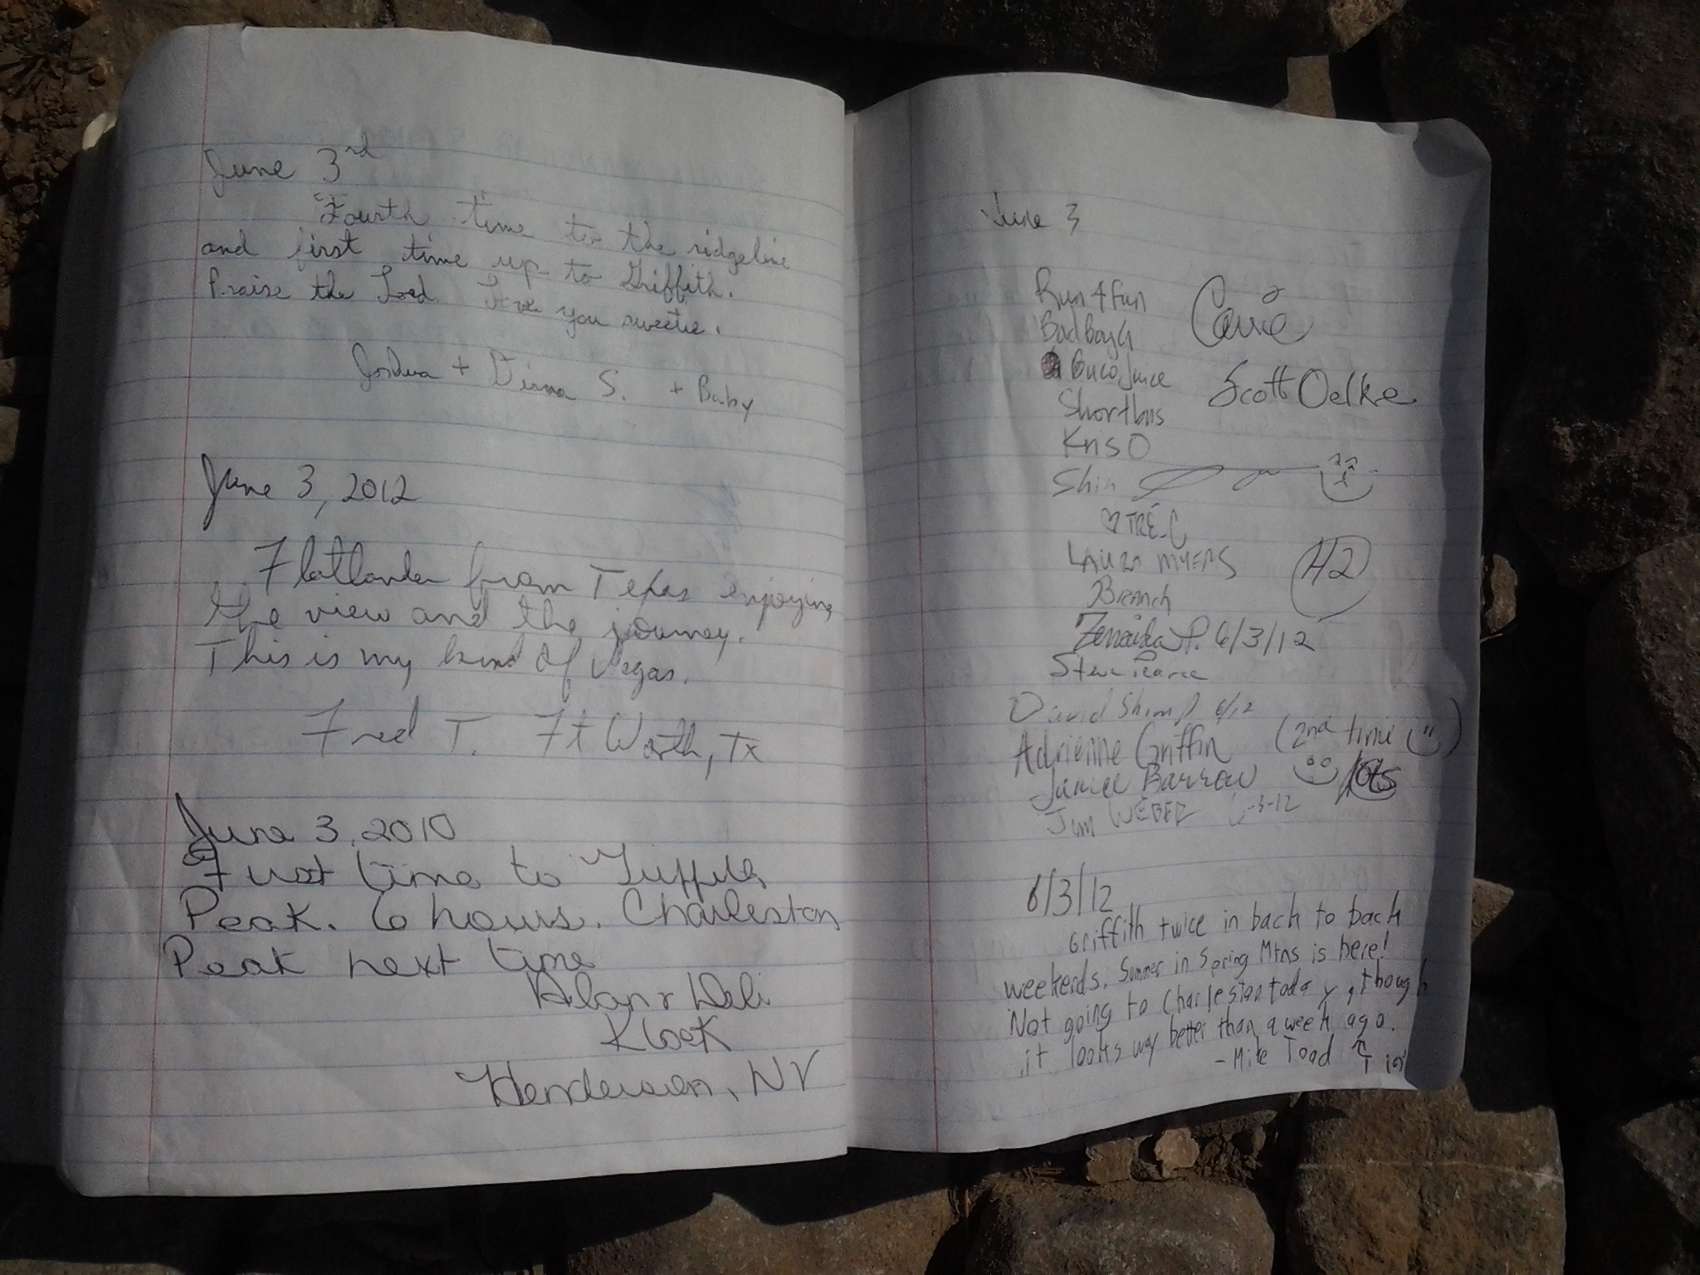 June 3rd
Fourth time to the ridgeline
and first time up to Griffith.
Praise the Lord I love you sweetie.
Joshua + Diana S. + Baby
June 3, 2012
Flatlander from Texas enjoying
the view and the journey.
This is my kind of Vegas.
Fred T. Ft Worth, Tx
June 3, 2010
First time to Griffith
Peak. 6 hours. Charleston
Peak next time
Alan + Deli
Kloek
Henderson, NV
June 3
Run 4 fun
Carrie
Bad boy
Juice
Scott Oelke
Shortbus
Kns O
Shin
TRE.C
LAURA MYERS
H2
Branch
Zenaida P. 6/3/12
Steve Pearce
David 6/12
Adrienne Griffin (2nd time )
Janice Barrow lots
Jim WEBER 6-3-12
6/3/12
Griffith twice in back to back
weekends. Summer in Spring Mtns is here!
Not going to Charleston today, though
it looks way better than a week ago.
- Mike Toad